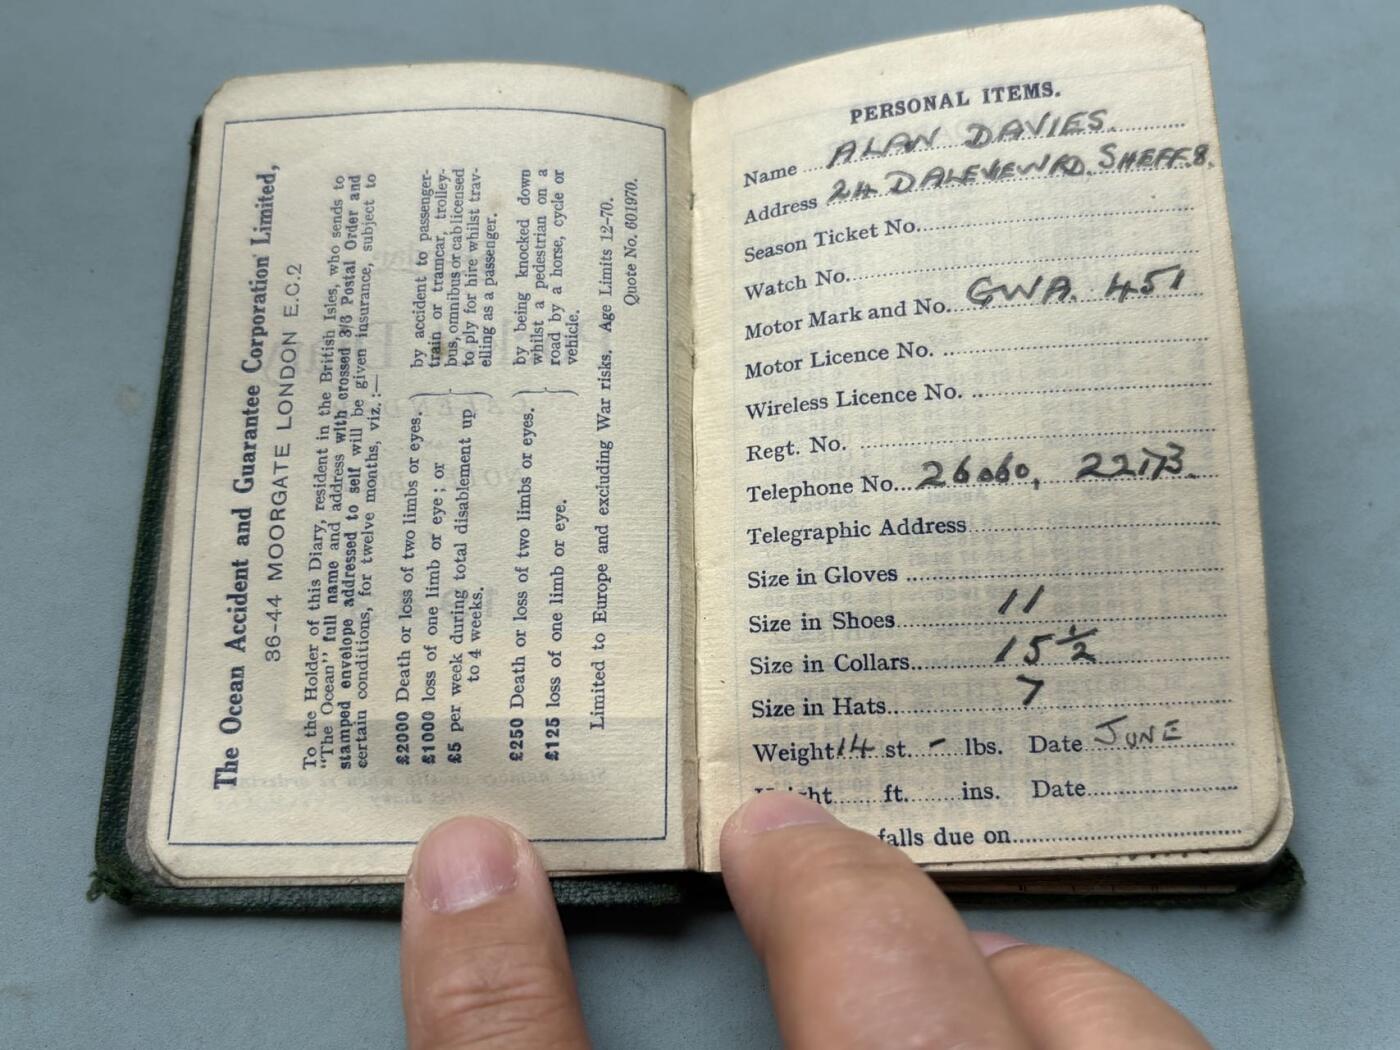 The Ocean Accident and Guarantee Corporation Limited,
36-44 MOORGATE LONDON E.C.2
To the Holder of this Diary, resident in the British Isles, who sends to
"The Ocean" full name and address with crossed 3/6 Postal Order and
stamped envelope addressed to self will be given insurance, subject to
certain conditions, for twelve months, viz.:—
£2000 Death or loss of two limbs or eyes.
£1000 loss of one limb or eye; or
£5 per week during total disablement up
to 4 weeks.
by accident to passenger-
train or tramcar, trolley-
bus, omnibus or cab licensed
to ply for hire whilst trav-
elling as a passenger.
£250 Death or loss of two limbs or eyes.
£125 loss of one limb or eye.
by being knocked down
whilst a pedestrian on a
road by a horse, cycle or
vehicle.
Limited to Europe and excluding War risks. Age Limits 12-70.
Quote No. 601970.
PERSONAL ITEMS.
Name ALAN DAVIES.
Address 24 DALEVIEW RD. SHEFF. 8.
Season Ticket No.
Watch No.
Motor Mark and No. GWA. 451
Motor Licence No.
Wireless Licence No.
Regt. No.
Telephone No. 26060, 22173.
Telegraphic Address
Size in Gloves
Size in Shoes 11
Size in Collars 15½
Size in Hats 7
Weight 14 st. - lbs. Date JUNE
ft. ins. Date
falls due on